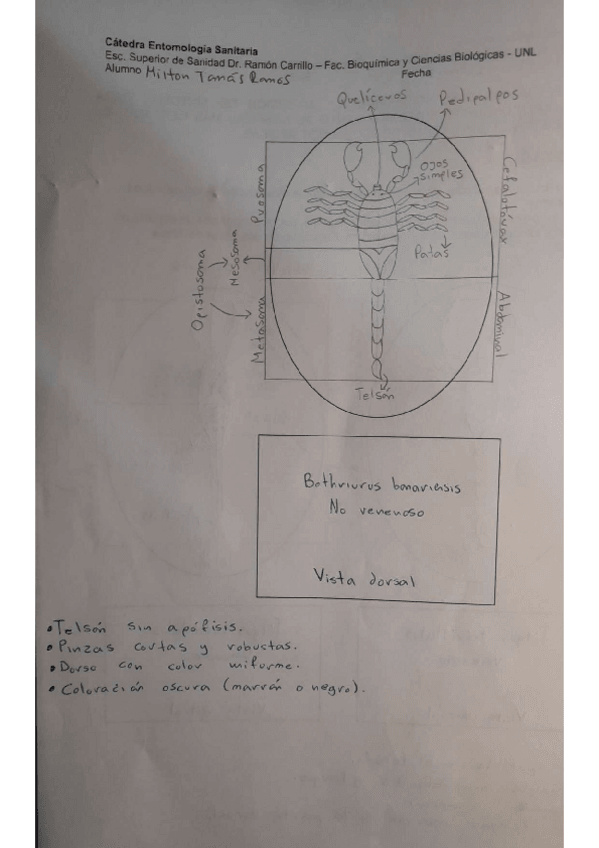 Cátedra Entomología Sanitaria
Esc. Superior de Sanidad Dr. Ramón Carrillo – Fac. Bioquímica y Ciencias Biológicas - UNL
Alumno Milton Tomás Ramos
Fecha
Quelíceros
Pedipalpos
Ojos
simples
Prosoma
Cefalotórax
Patas
Mesosoma
Opistosoma
Metasoma
Abdominal
Telsón
Bothriurus bonariensis
No venenoso
Vista dorsal
• Telsón sin apófisis.
• Pinzas cortas y robustas.
• Dorso con color uniforme.
• Coloración oscura (marrón o negro).